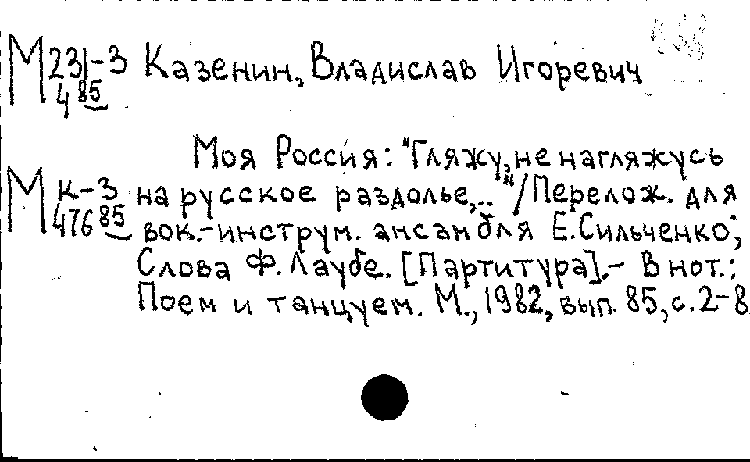 М 231-3 Казенин, Владислав Игоревич
4 85
Моя Россия: "Гляжу, не нагляжусь
М К-3 на русское раздолье,.." / Перелож. для
476 85 вок.-инструм. ансамбля Е. Сильченко;
Слова Ф. Лаубе. [Партитура].- В нот.:
Поем и танцуем. М., 1982, вып. 85, с. 2-8